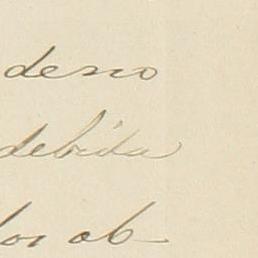 deseo
debida
los ob-